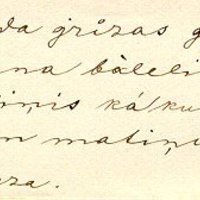 da grīzas g
na bāleli
ōņis kā'ku
m matiņu
za.